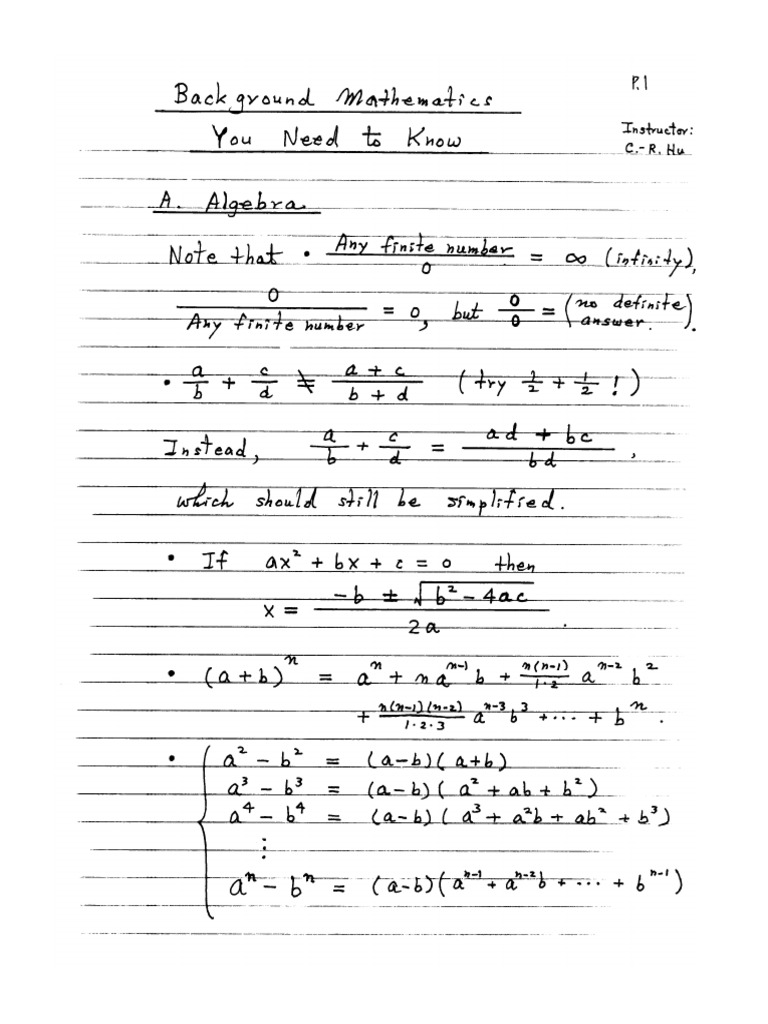 P.1
Background Mathematics
You Need to Know
Instructor:
C.-R. Hu
A. Algebra
Note that • Any finite number / 0 = ∞ (infinity),
0 / Any finite number = 0, but 0/0 = (no definite answer.).
• a/b + c/d ≠ (a + c)/(b + d) (try 1/2 + 1/2 !)
Instead, a/b + c/d = (ad + bc)/(bd),
which should still be simplified.
• If ax² + bx + c = 0 then
x = (-b ± √(b² - 4ac))/(2a).
• (a+b)ⁿ = aⁿ + naⁿ⁻¹b + n(n-1)/(1·2) aⁿ⁻²b²
+ n(n-1)(n-2)/(1·2·3) aⁿ⁻³b³ + ··· + bⁿ.
• { a² - b² = (a-b)(a+b)
a³ - b³ = (a-b)(a² + ab + b²)
a⁴ - b⁴ = (a-b)(a³ + a²b + ab² + b³)
⋮
aⁿ - bⁿ = (a-b)(aⁿ⁻¹ + aⁿ⁻²b + ··· + bⁿ⁻¹)